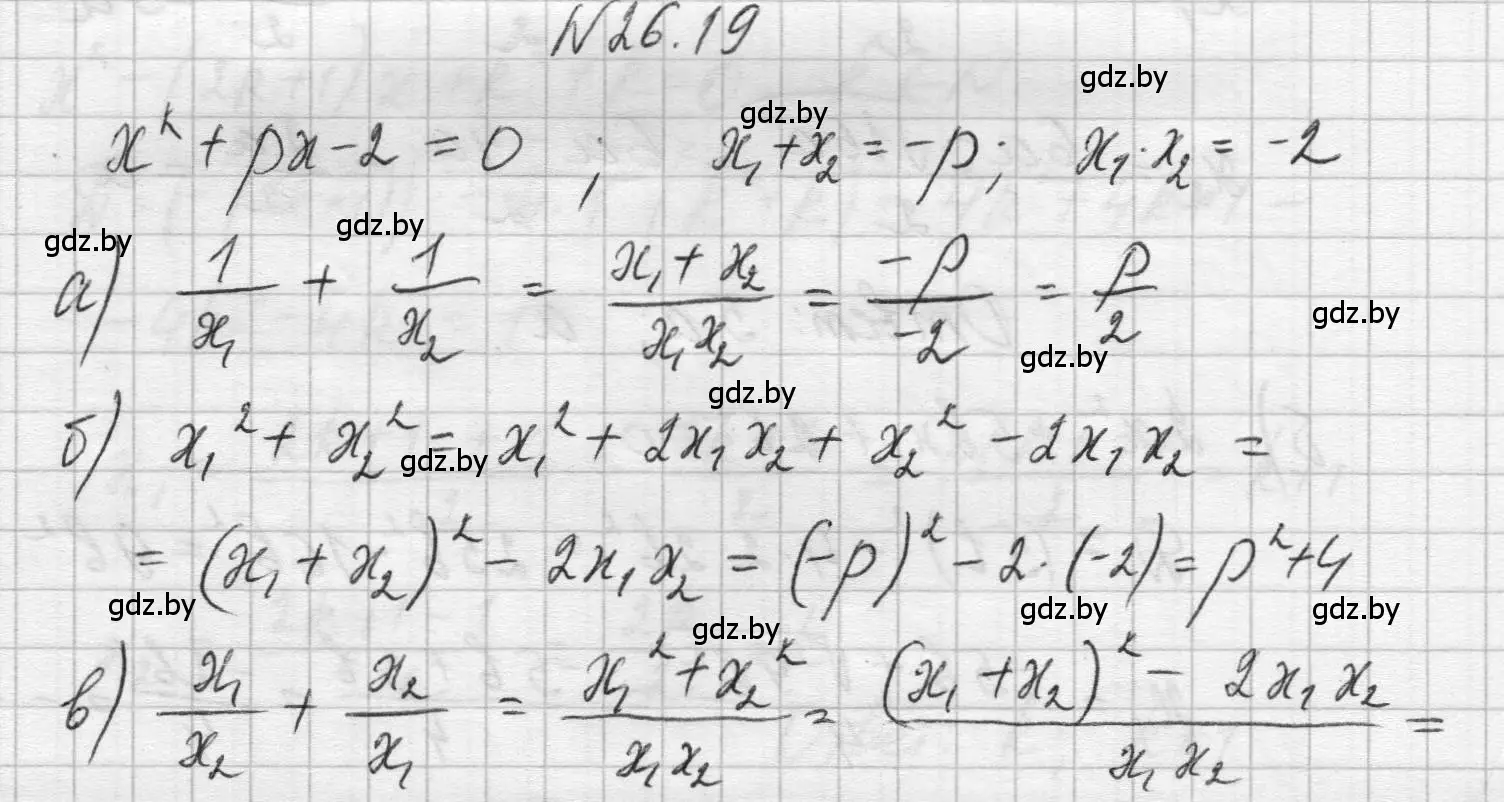 N26.19
gdz.by
gdz.by
x² + px - 2 = 0 ; x₁ + x₂ = -p; x₁ · x₂ = -2
gdz.by gdz.by
а) 1/x₁ + 1/x₂ = (x₁ + x₂)/(x₁x₂) = (-p)/(-2) = p/2
gdz.by
gdz.by
gdz.by
б) x₁² + x₂² = x₁² + 2x₁x₂ + x₂² - 2x₁x₂ =
gdz.by
= (x₁ + x₂)² - 2x₁x₂ = (-p)² - 2 · (-2) = p² + 4
gdz.by gdz.by gdz.by
gdz.by
в) x₁/x₂ + x₂/x₁ = (x₁² + x₂²)/(x₁x₂) = ((x₁ + x₂)² - 2x₁x₂)/(x₁x₂) =